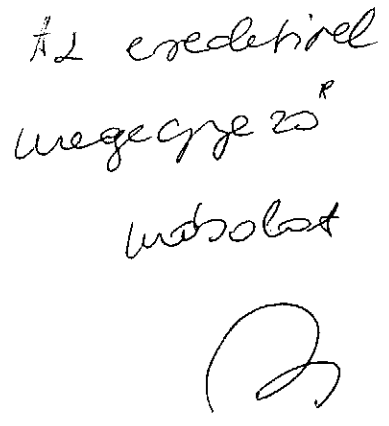 Az eredetivel
megegyező
másolat